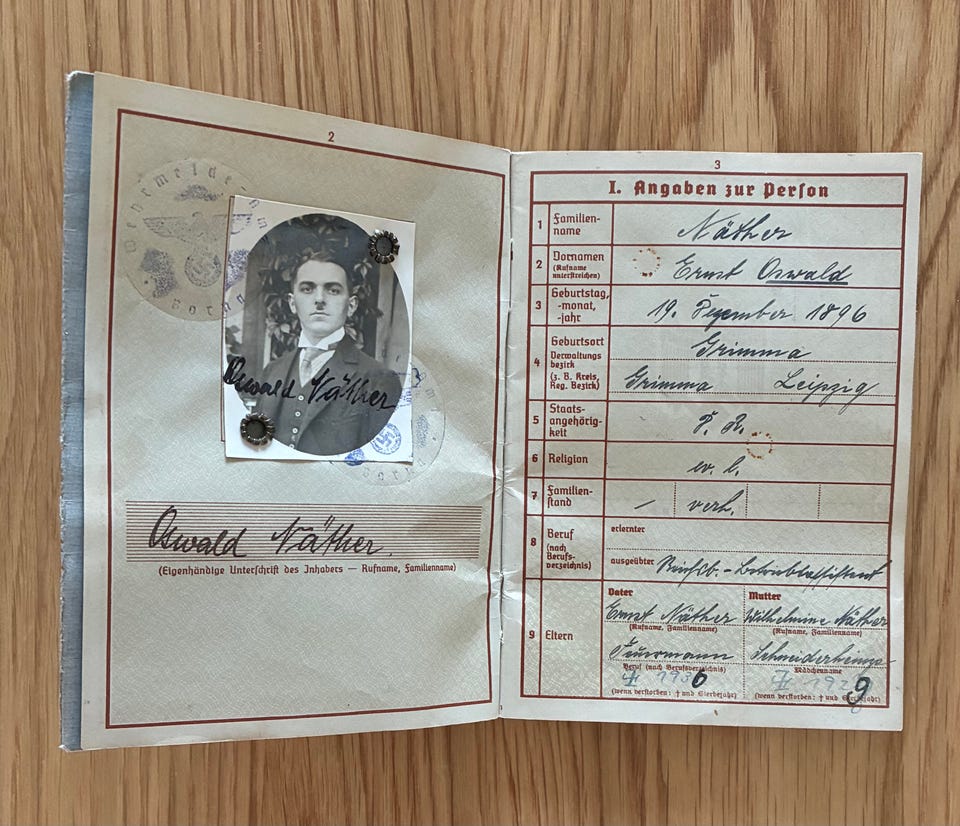 2
Wehrmelde-
Oswald Näther
Oswald Näther.
(Eigenhändige Unterschrift des Inhabers — Rufname, Familienname)
3
I. Angaben zur Person
1 Familien-
name
Näther
2 Vornamen
(Rufname
unterstreichen)
Ernst Oswald
3 Geburtstag,
-monat,
-jahr
19. Dezember 1896
4 Geburtsort
Verwaltungs
bezirk
(z. B. Kreis,
Reg. Bezirk)
Grimma
Grimma Leipzig
5 Staats-
angehörig-
keit
D. R.
6 Religion
ev. l.
7 Familien-
stand
— verh.
8 Beruf
(nach
Berufs-
verzeichnis)
erlernter
ausgeübter Reichsb.-Betriebsassistent
9 Eltern
Vater Mutter
Ernst Näther Wilhelmine Näther
(Rufname, Familienname) (Rufname, Familienname)
Feuermann
Beruf (nach Berufsverzeichnis) Mädchenname
1936
(wenn verstorben: † und Sterbejahr) (wenn verstorben: † und Sterbejahr)